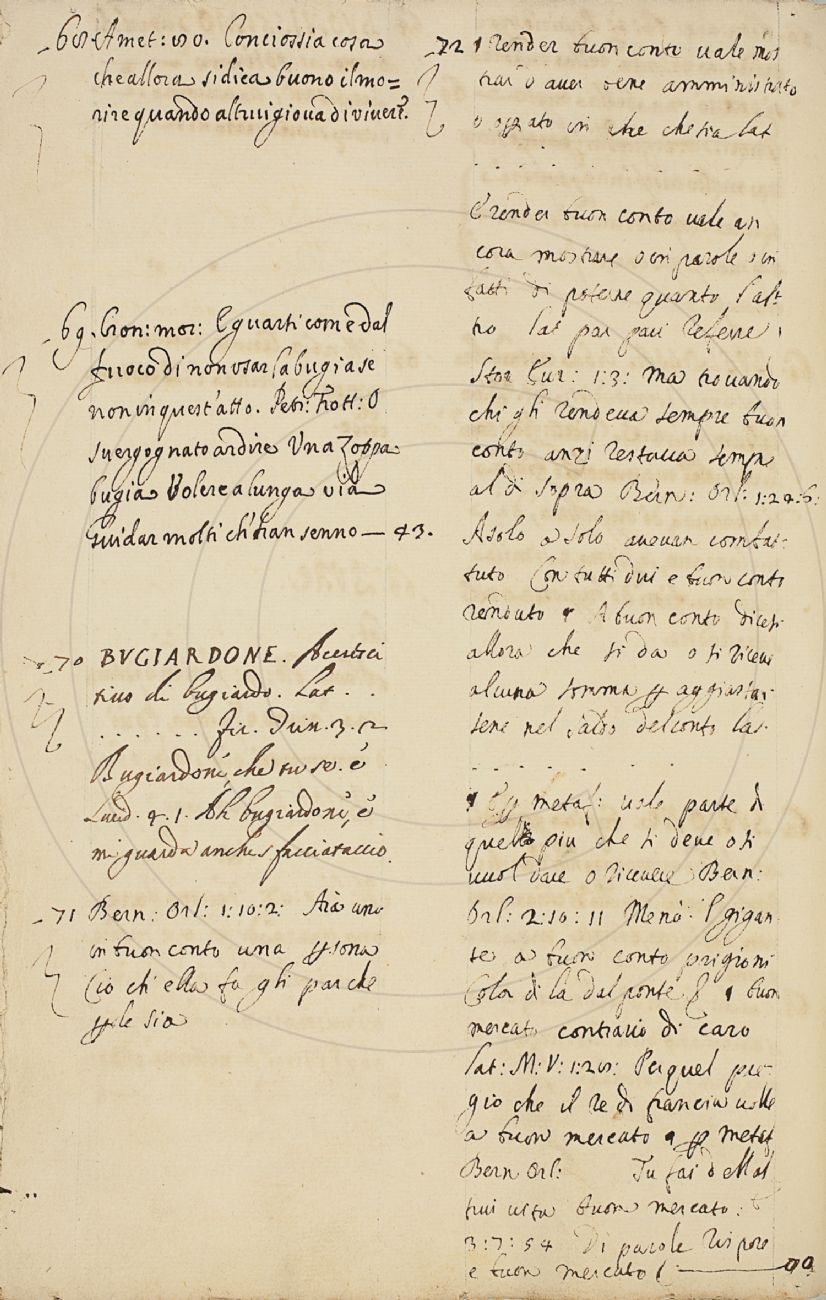 68 Amet: 90. Conciossia cosa
che allora si dica buono il mo=
rire quando altrui giova di vivere.
69. Cron: mor: E guarti come dal
fuoco di non usar la bugia se
non in quest'atto. Petr: Frott: O
svergognato ardire Una zoppa
bugia Volere a lunga via
Guidar molti ch' àn senno — 43.
70 BVGIARDONE. Accresci
tivo di bugiardo. Lat. .
. . . . . . fir. 3. 2
Bugiardone, che tu se. è
Lucid. 4. 1. Ah bugiardone, e
mi guarda anche sfacciataccio.
71 Bern: Orl: 1:10:2: Àià uno
in buon conto una ꝑsona
Ciò ch' ella fa gli par che
ꝑle sia
72 ¶ render buon conto vale mos
trar o aver bene amministrato
o in che che sia Lat
. . . . . . .
E render buon conto vale an
cora mostrare o in parole o in
fatti di poterne quanto l'alt
ro lat par pari referre.
Stor Eur: 1:3: Ma trovando
chi gli rendeva sempre buon
conto anzi restava sempre
al di sopra Bern: Orl: 1:24:6:
A solo a solo avevan combat-
tuto Con tutti dui e buon conto
renduto ¶ A buon conto dicesi
allora che si dà o si riceve
alcuna somma ꝑ aggiustar-
sene nel saldo del conto lat.
. . . . . . .
¶ E ꝑ metaf: vale parte di
quello più che si deve o si
vuol dare o ricevere Bern:
Orl: 2:10:11 Menò l gigan
te a buon conto prigioni
Color di là dal ponte ¶ buon
mercato contrario di caro
lat: M: V: 1:20: Per quel pre-
gio che il re di francia volle
a buon mercato ¶ ꝑ metaf
Bern Orl: Tu fai dell'al
trui vita buon mercato:
3:7:54 Di parole
e buon mercato ( —— 90